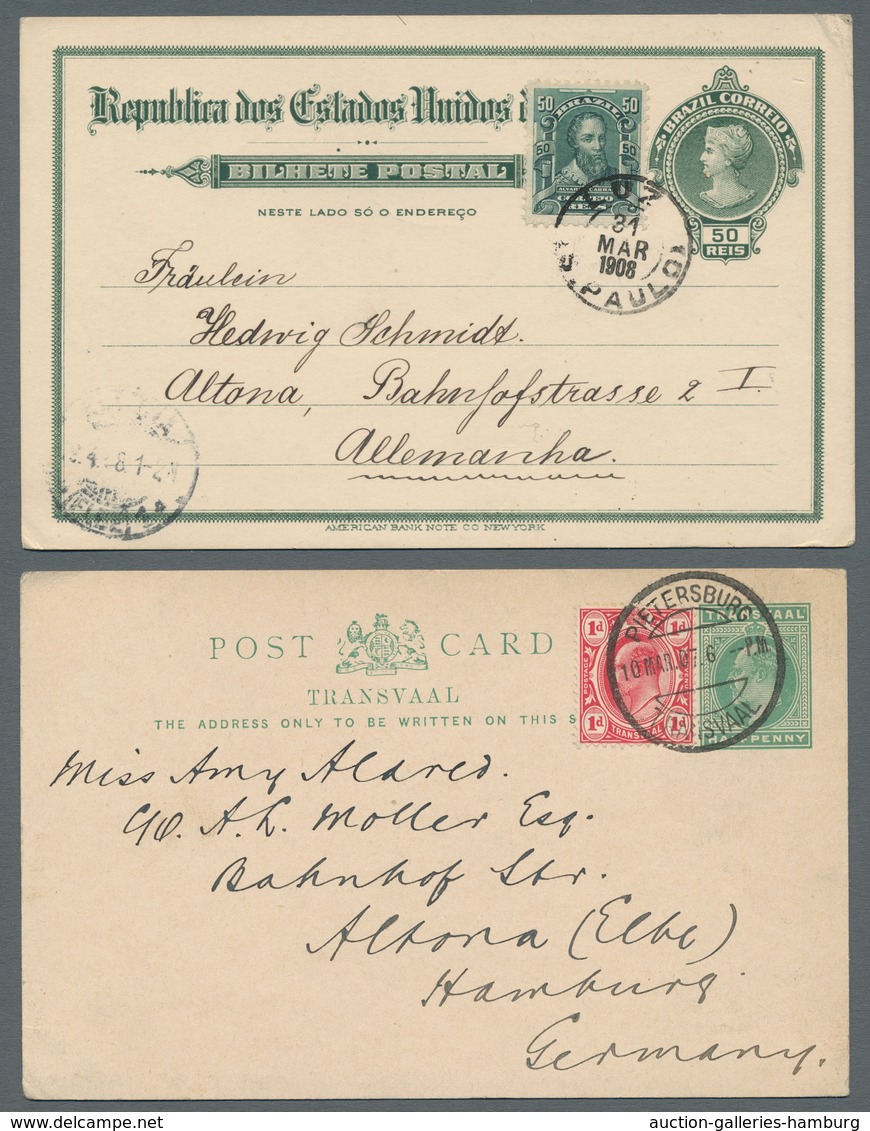 Republica dos Estados Unidos d
BILHETE POSTAL
NESTE LADO SÓ O ENDEREÇO
50 BRAZIL 50
50 50
BRAZIL CORREIO
50
REIS
31
MAR
1908
PAULO
Fräulein
Hedwig Schmidt.
Altona, Bahnhofstrasse 2 I.
Allemanha.
AMERICAN BANK NOTE CO NEW YORK
POST CARD
TRANSVAAL
THE ADDRESS ONLY TO BE WRITTEN ON THIS S
1d 1d
POSTAGE
1d 1d
TRANSVAAL
TRANSVAAL
HALFPENNY
PIETERSBURG
10 MAR.07.6 -P.M
TRANSVAAL
Miss Amy Aldred.
c/o. A. L. Moller Esq.
Bahnhof Str.
Altona (Elbe)
Hamburg
Germany.
auction-galleries-hamburg